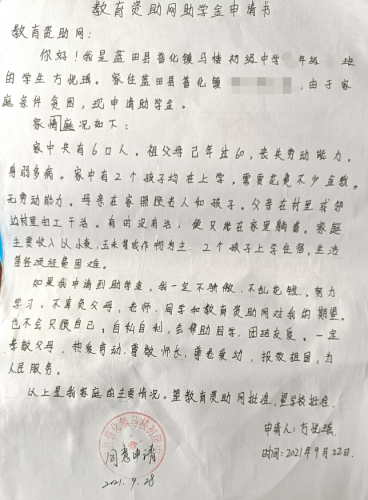 教育资助网助学金申请书
教育资助网：
你好！我是蓝田县普化镇马楼初级中学 年级 班
的学生方悦瑶。家住蓝田县普化镇 ，由于家
庭条件贫困，现申请助学金。
家庭况如下：
家中共有6口人。祖父母已年过60，丧失劳动能力。
身弱多病。家中有2个孩子均在上学，需要花费不少金额，
无劳动能力。母亲在家照顾老人和孩子。父亲在村里或邻
边村里打工干活。有时没有活，便只能在家里躺着。家庭
主要收入以小麦，玉米等农作物为主，2个孩子上学住宿，生活
等都很是困难。
如果我申请到助学金，我一定不骄傲，不乱花钱。努力
学习。不辜负父母，老师，同学和教育资助网对我的期望。
也不会只顾自己，自私自利，会帮助同学，团结友爱。一定
孝敬父母，热爱劳动，尊敬师长，尊老爱幼，报效祖国，为
人民服务。
以上是我家庭的主要情况。望教育资助网批准，望学校批准。
申请人：方悦瑶
时间：2021年9月22日.
同意申请
2021.9.28